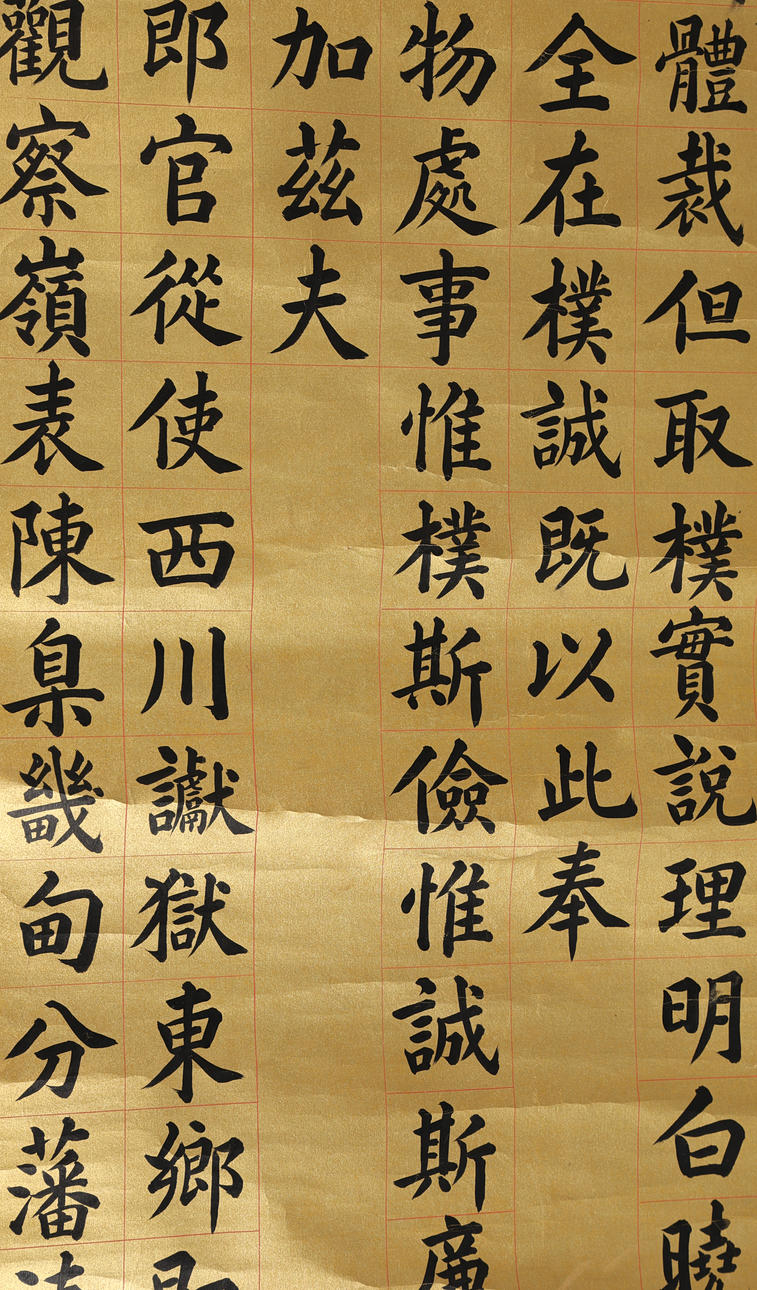 體裁但取樸實說理明白曉
全在樸誠既以此奉
物處事惟樸斯儉惟誠斯廉
加茲夫
郎官從使西川讞獄東鄉
觀察嶺表陳臬畿甸分藩